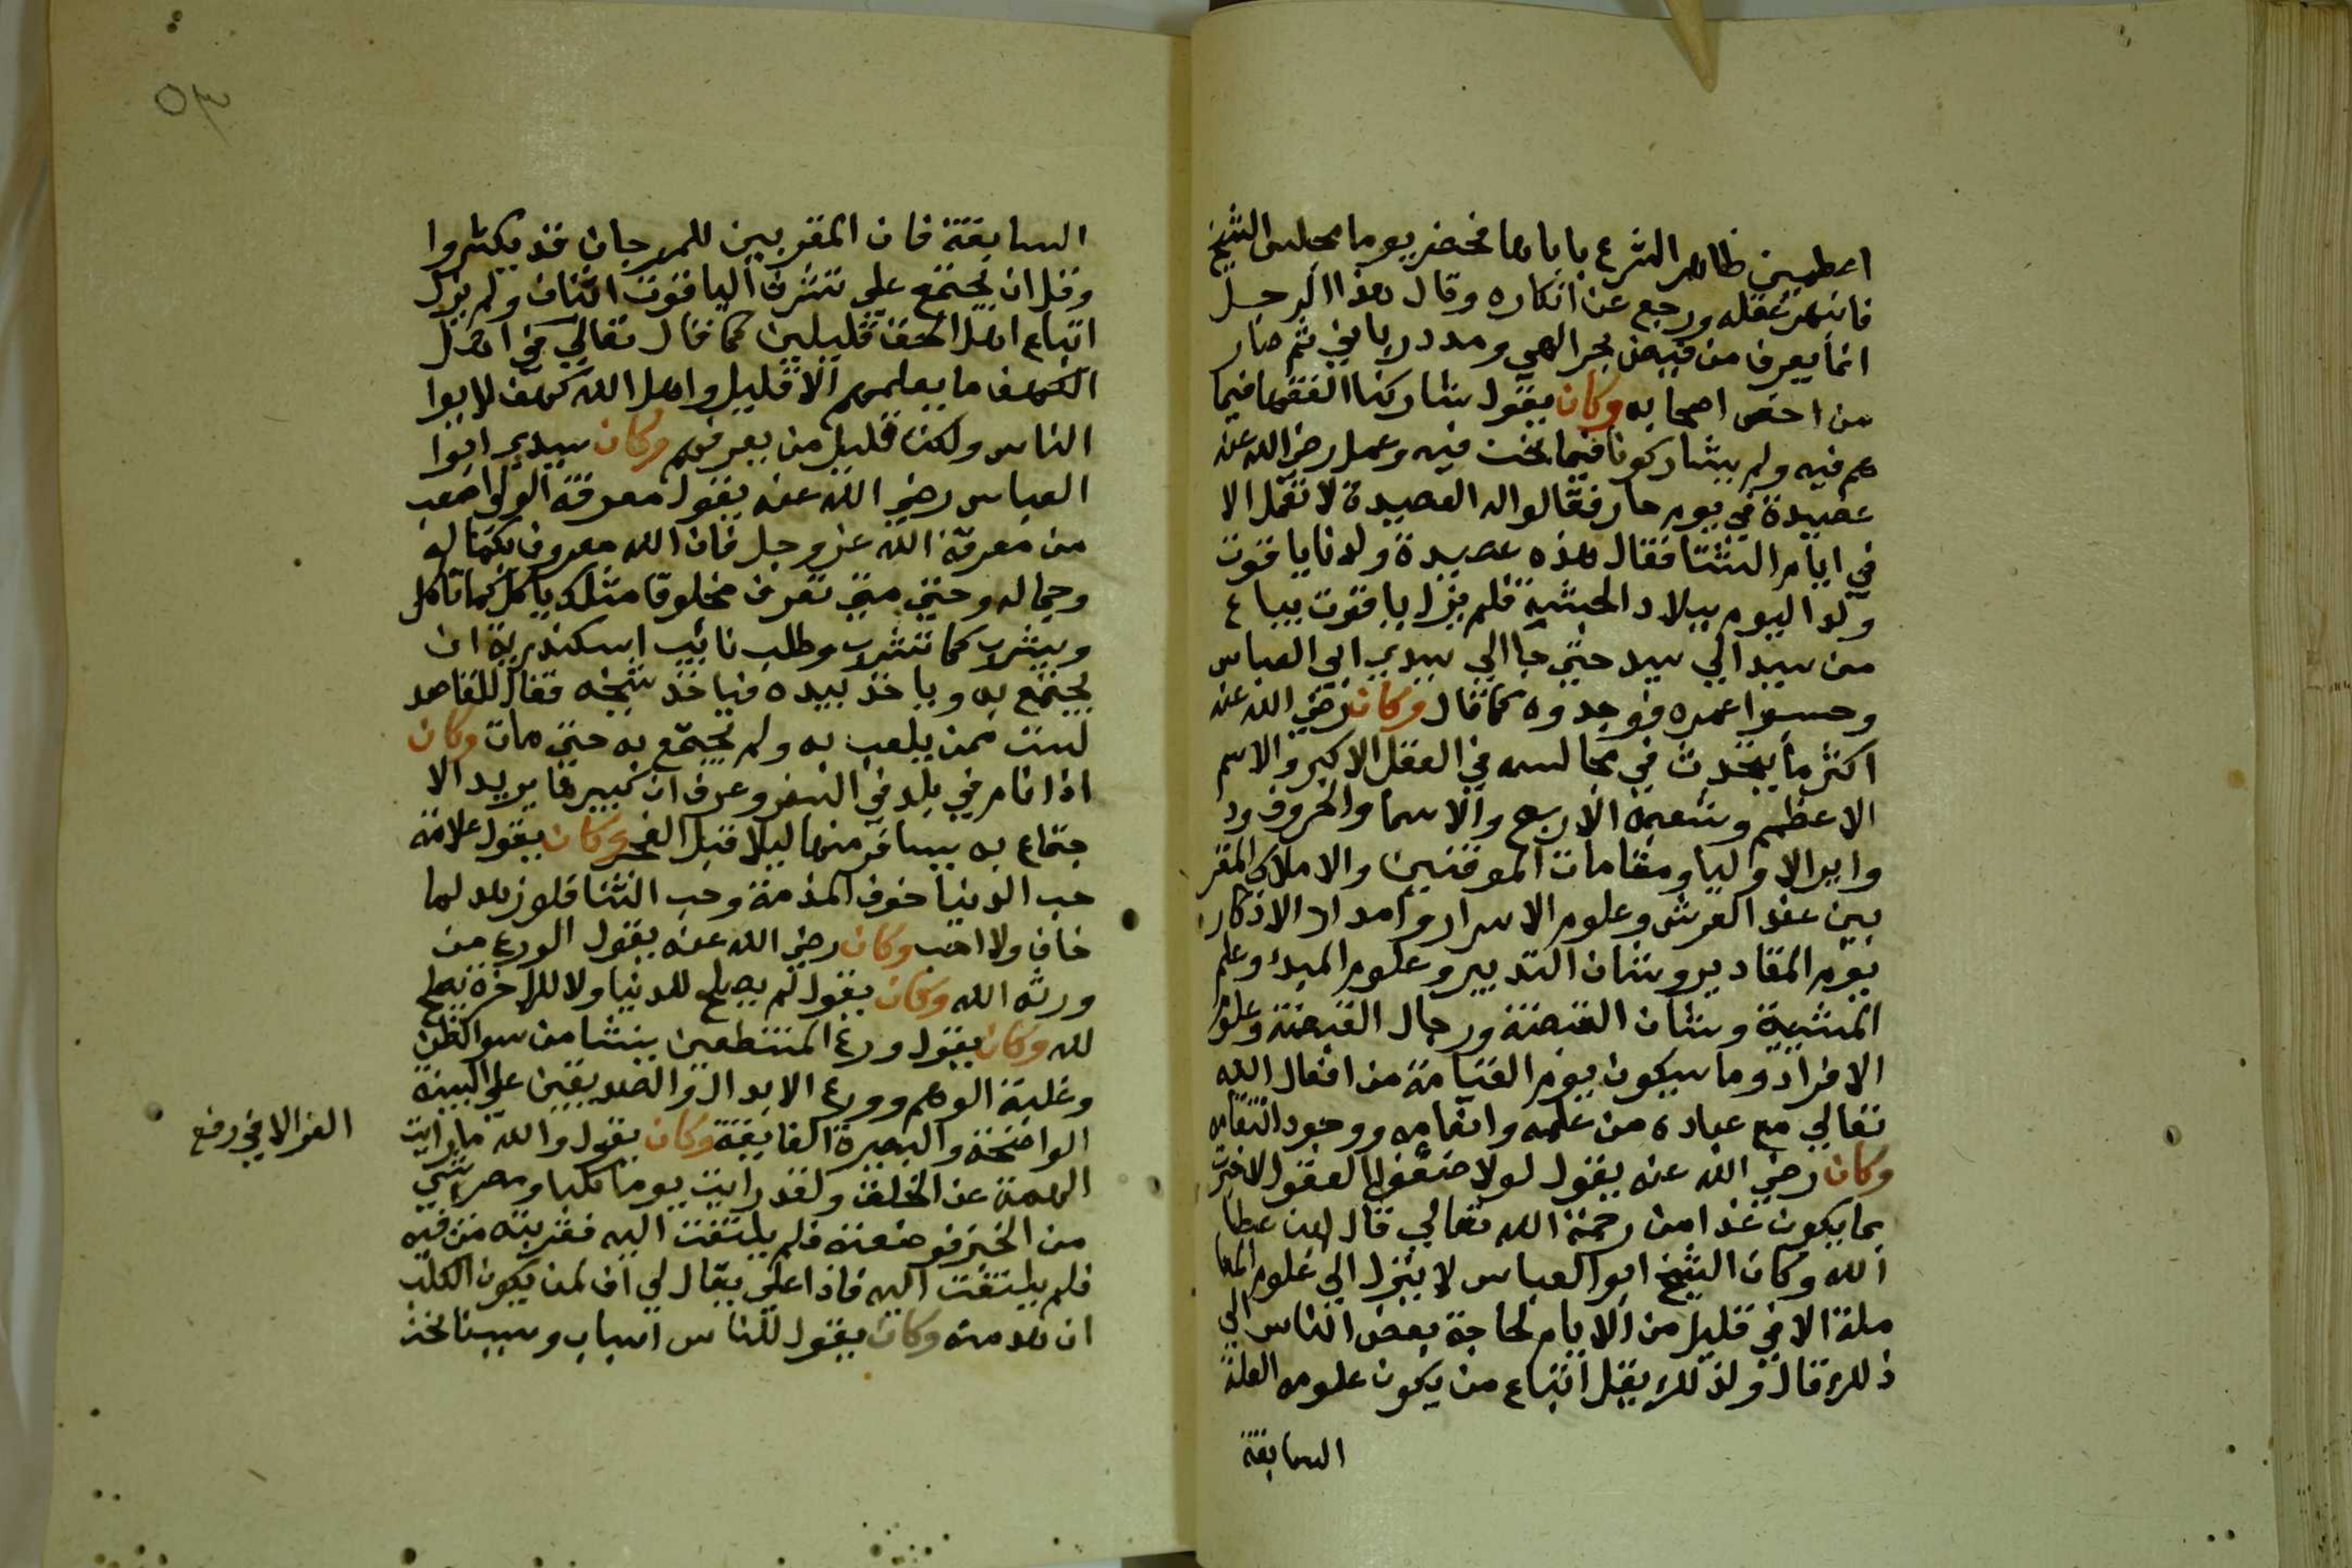 اعظمين ظاهر الشرع ياباها فحضر يوما مجلس الشيخ
فانبهر عقله ورجع عن انكاره وقال هذا الرجل
انما يعرف من فيض بحر الهي ومدد رباني ثم صار
من اخص اصحابه وكان يقول شاركنا الفقها فيما
هم فيه ولم يشاركونا فيما نحن فيه وعمل رضي الله عنه
عصيدة في يوم حار فقالوا له العصيدة لا تعمل الا
في ايام الشتا فقال هذه عصيدة ولدنا ياقوت
ولد اليوم ببلاد الحبشة فلم يزل ياقوت يباع
من سيد الي سيد حتي جا الي سيدي ابي العباس
وحسبوا عمره فوجدوه كما قال وكان رضي الله عنه
اكثر ما يتحدث في مجالسه في العقل الاكبر والاسم
الاعظم وشعبه الاربع والاسما والحروف ود
واير الاوليا ومقامات الموقنين والاملاك المقر
بين عند العرش وعلوم الاسرار وامداد الاذكار
يوم المقادير وشان التدبير وعلوم البدء وعلم
المشيية وشان القبضة ورجال القبضة وعلوم
الافراد وما سيكون يوم القيامة من افعال الله
تعالي مع عباده من حلمه وانعامه ووجود انتقامه
وكان رضي الله عنه يقول لولا ضعف العقول لاخبرت
بما يكون غدا من رحمة الله تعالي قال ابن عطا
الله وكان الشيخ ابو العباس لا ينزل الي علوم المعا
ملة الا في قليل من الايام لحاجة بعض الناس الي
ذلك قال ولذلك يقل اتباع من يكون علومه العلة
السابقة
٥٣
السابقة فان المقربين للمرجان قد يكثروا
وقل ان يجتمع علي شرا الياقوت اثنان ولم يزل
اتباع اهل الحق قليلين كما قال تعالي في اهل
الكهف ما يعلمهم الا قليل واهل الله كهف لابوا
الناس ولكن قليل من يعرفهم وكان سيدي ابوا
العباس رضي الله عنه يقول معرفة الولي اصعب
من معرفة الله عز وجل فان الله معروف بكماله
وجماله وحتي متي تعرف مخلوقا مثلك ياكل كما تاكل
ويشرب كما تشرب وطلب نائب اسكندرية ان
يجتمع به وياخذ بيده فياخذ شيخه فقال للقاصد
لست ممن يلعب به ولم يجتمع به حتي مات وكان
اذا نام في بلد في السفر وعرف ان كبيرها يريد الا
جتماع به يسافر منها ليلا قبل الفجر وكان يقول علامة
حب الدنيا خوف المذمة وحب الثنا فلو زهد لما
خاف ولا احب وكان رضي الله عنه يقول الورع من
ورثه الله وكان يقول لم يصلح للدنيا ولا للاخرة يصلح
لله وكان يقول ورع المنتطعين ينشا من سو الظن
وغلبة الوهم وورع الابدال والصديقين علي البينة
الواضحة والبصيرة الفايقة وكان يقول والله ما رايت
العز الا في رفع
الهمة عن الخلق ولقد رايت يوما كلبا ومعي شي
من الخبز فوضعته فلم يلتفت اليه فقربته من فيه
فلم يلتفت اليه فاذا علي يقال لي اف لمن يكون الكلب
ازهد منه وكان يقول للناس اسباب وسببنا نحن